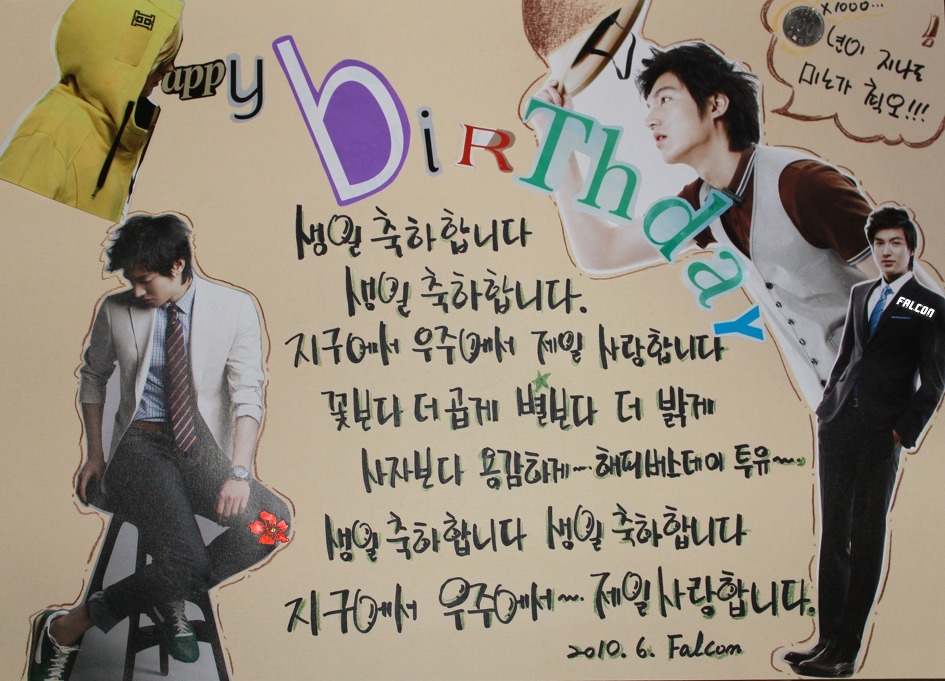 appy biRThdaY
x1000...
년이 지나도
미노가 최오!!!
생일 축하합니다
생일 축하합니다.
지구에서 우주에서 제일 사랑합니다
꽃보다 더 곱게 별보다 더 밝게
사자보다 용감하게~ 해피버스데이 투유~.
생일 축하합니다 생일 축하합니다
지구에서 우주에서~ 제일 사랑합니다.
2010. 6. Falcon
FALCON